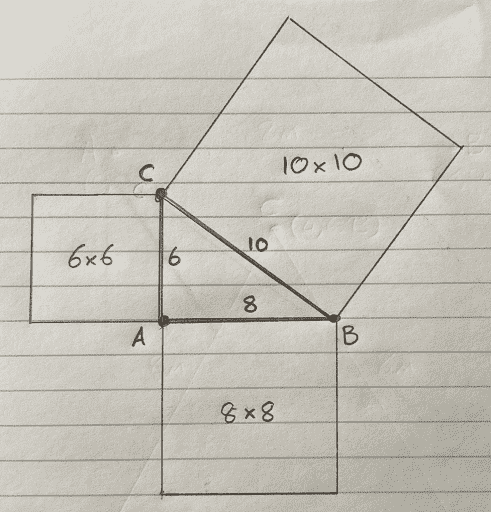 C
10×10
6×6
6
10
8
A
B
8×8